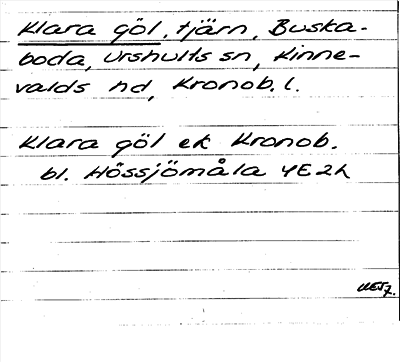 Klara göl, tjärn, Buska-
boda, Urshults sn, Kinne-
valds hd, Kronob. l.
Klara göl ek Kronob.
bl. Hössjömåla 4E2h